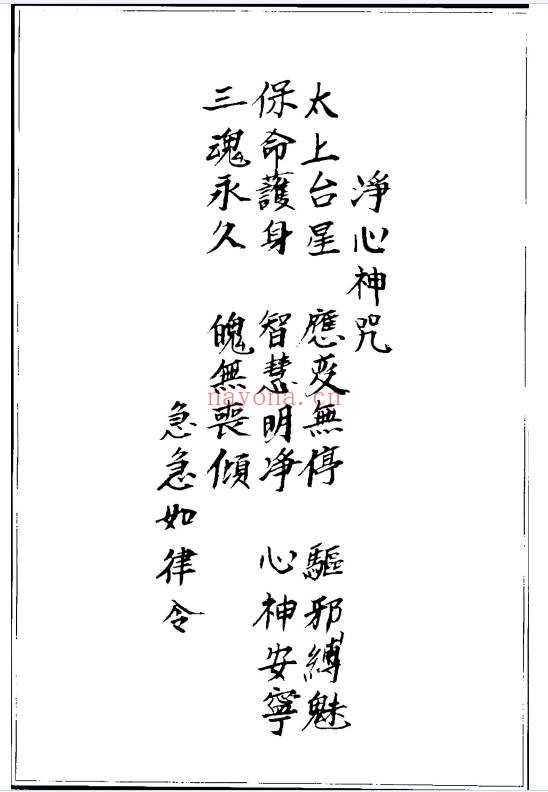 淨心神咒
太上台星　應变無停　驅邪縛魅
保命護身　智慧明凈　心神安寧
三魂永久　魄無喪傾
急急如律令
nayona.cn